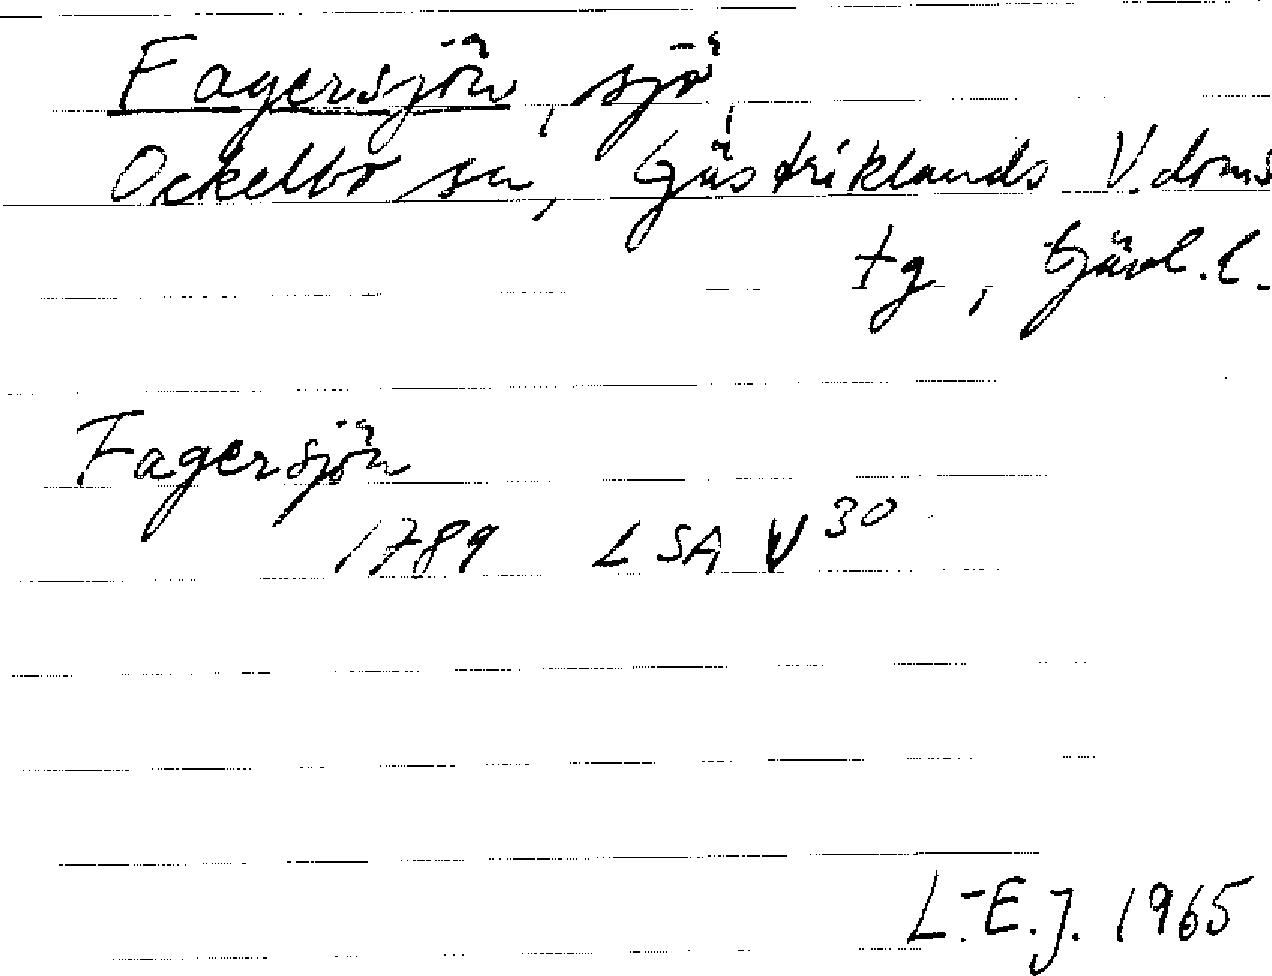 Fagersjön, sjö
Ockelbo sn, Gästriklands V. doms
tg, Gävl. l.
Fagersjön
1789 LSA V 30
L-E.J. 1965